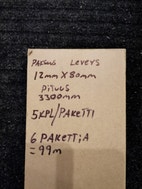 PAKSUUS LEVEYS
12mm X 80mm
PITUUS
3300mm
5KPL/PAKETTI
6 PAKETTIA
= 99m